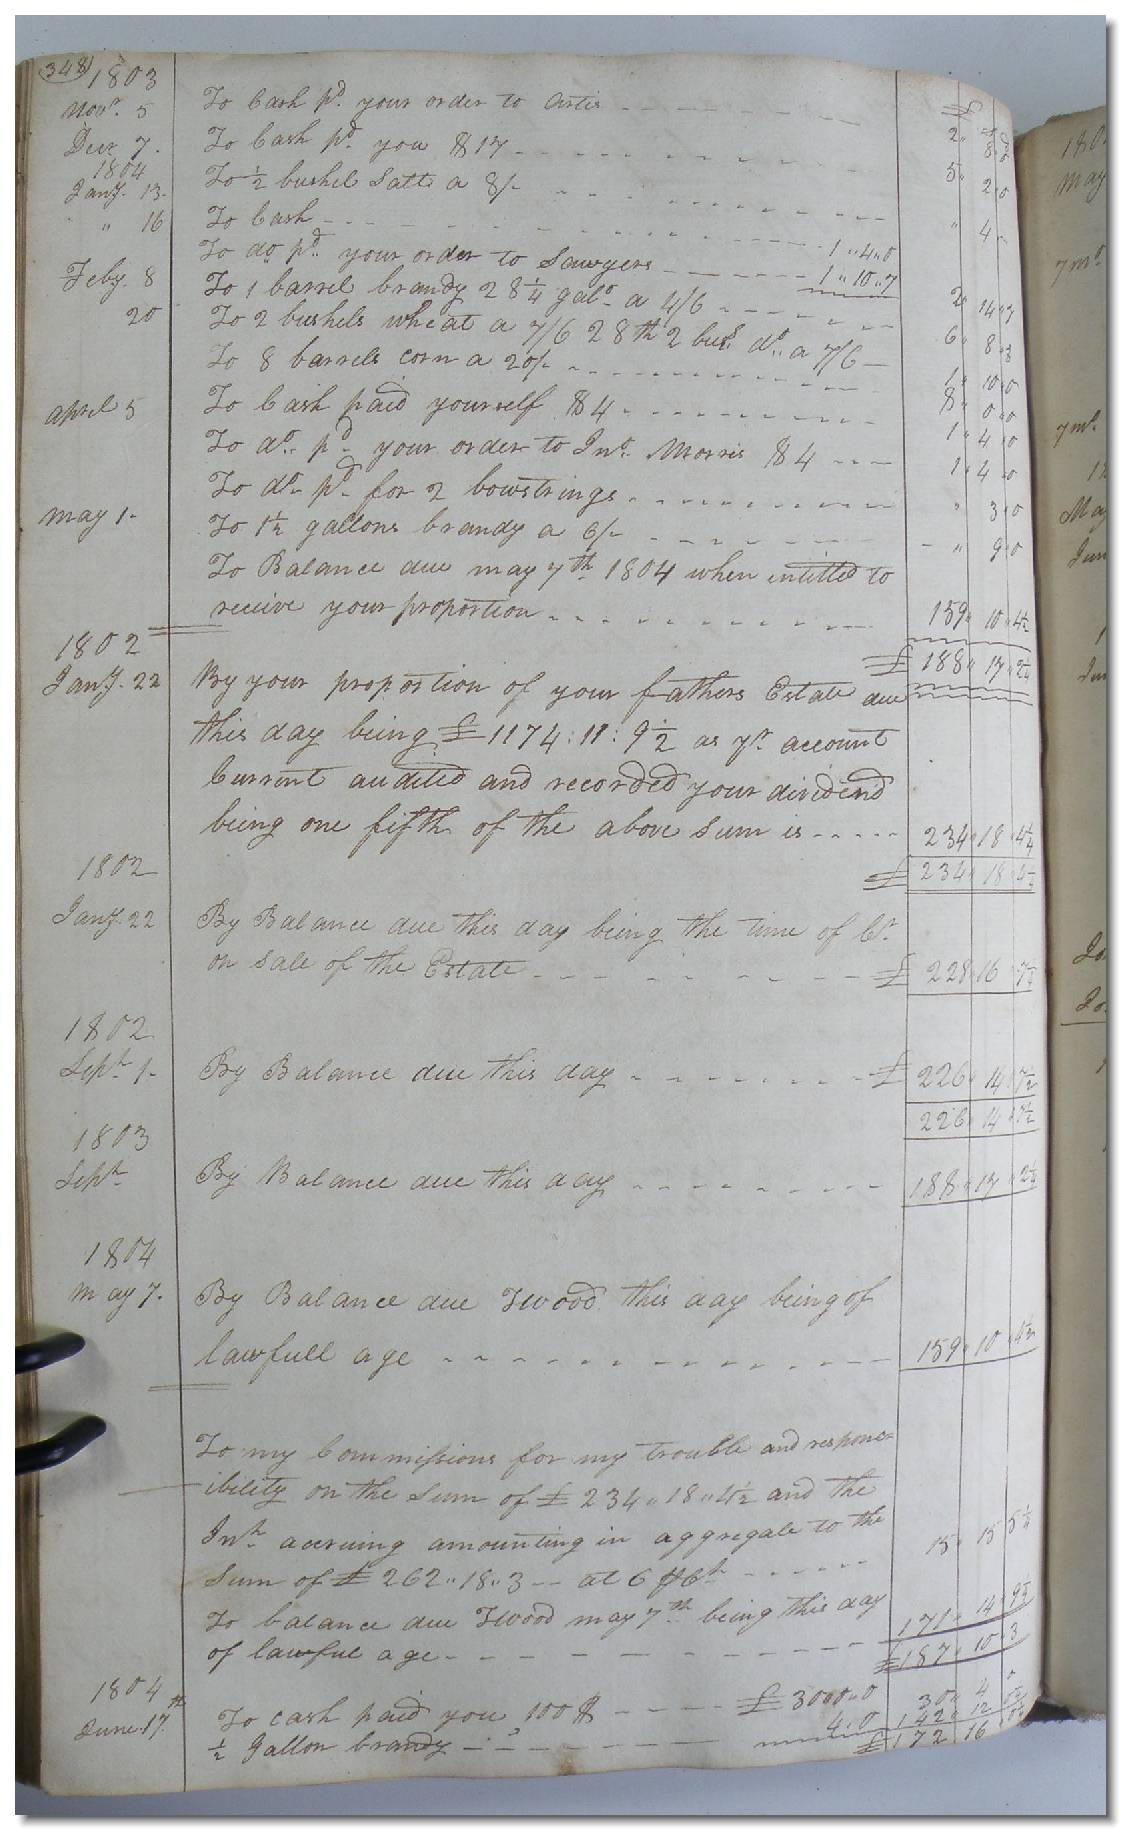 348
1803
Novr. 5 To Cash pd. your order to Artis 2 " 8 " 0
Decr 7. To Cash pd. you $17 5 " 2 " 0
1804
Jany. 13. To ½ bushel Salt a 8/- " 4 " -
" 16 To Cash 1 " 4 " 0
To do. pd. your order to Sawyers 1 " 10 " 7
2 " 14 " 7
Feby. 8 To 1 barrel brandy 28¼ galo. a 4/6 6 " 8 "
20 To 2 bushels wheat a 7/6 28th 2 bus. do. a 7/6 1 " 10 " 0
To 8 barrels corn a 20/- 8 " 0 " 0
April 5 To Cash paid yourself $4 1 " 4 " 0
To do. pd. your order to Jno. Morris $4 1 " 4 " 0
To do. pd. for 2 bowstrings " 3 " 0
May 1- To 1½ gallons brandy a 6/- " 9 " 0
To Balance due may 7th 1804 when intitled to
receive your proportion 159 " 10 " 4½
£ 188 " 17 " 2¼
1802
Jany. 22 By your proportion of your fathers Estate due
this day being £1174 : 11 : 9½ as pr. account
Current audited and recorded your dividend
being one fifth of the above Sum is 234 " 18 " 4¼
£ 234 " 18 " 4¼
1802
Jany. 22 By Balance due this day being the time of Ct.
on Sale of the Estate £ 228 " 16 " 7¼
1802
Sept. 1- By Balance due this day £ 226 " 14 " 7½
226 " 14 " 7½
1803
Sept. By Balance due this day 188 " 17 " 2¼
1804
May 7. By Balance due Twood this day being of
lawfull age 159 " 10 " 4½
To my Commissions for my trouble and respons-
ibility on the Sum of £ 234 " 18 " 4½ and the
Int. accruing amounting in aggregate to the
Sum of £ 262 " 18 " 3 -- at 6 pCt 15 " 15 " 5¼
To balance due Twood may 7th being this day 171 " 14 " 9¾
of lawful age £ 187 " 10 " 3
1804
June 17th To cash paid you 100$ £ 30 " 0 " 0 30 " 4 " 0
½ Gallon brandy 4 " 0 142 " 12
£ 172 " 16
180
May
7 mo.
7 mo.